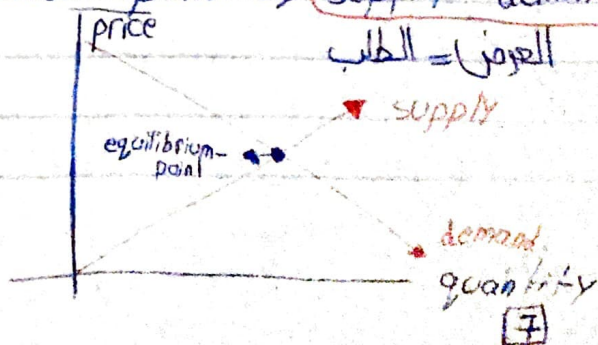 price
العرض = الطلب
supply
equilibrium
point
demand
quantity
7